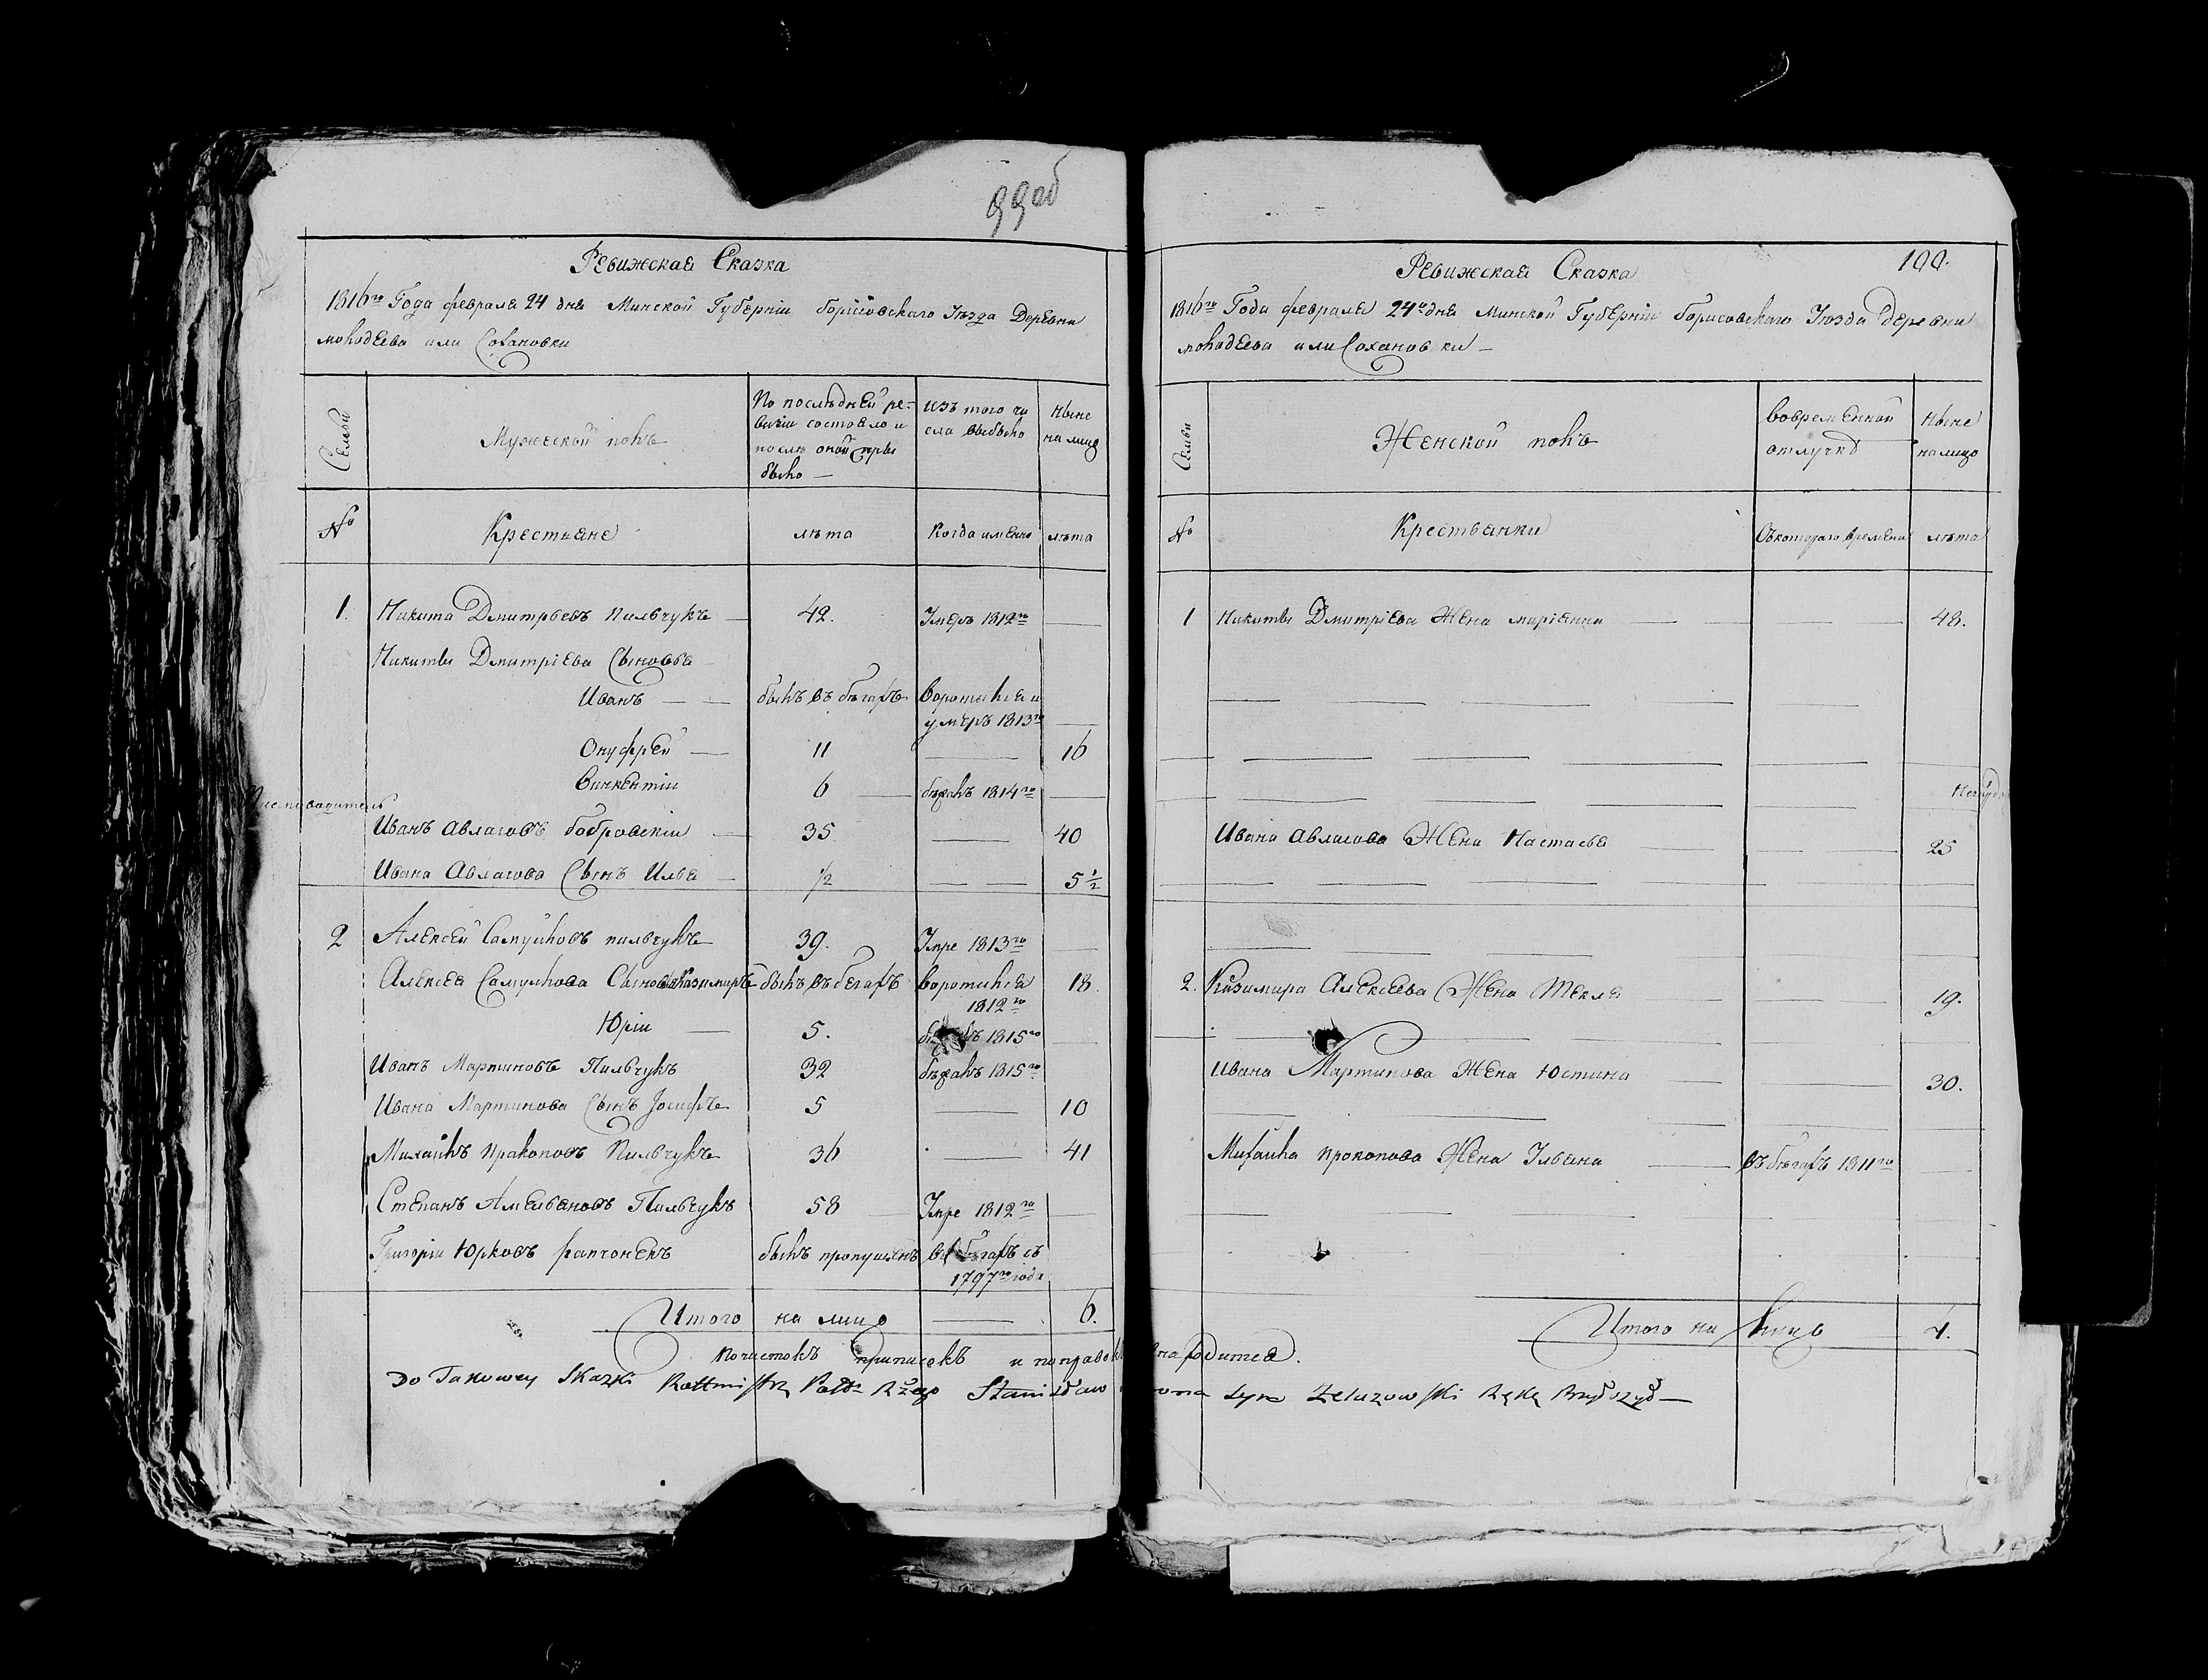 99об
Ревижская Сказка
1816го Года февраля 24 дня Минской Губерніи борисовскаго Уѣзда Деревни
молодеева или Сохановки
Семьи
Мужеской полъ
По последней ре-
визіи состояло и
послѣ оной при
было —
изъ того чи
сла выбыло
Ныне
на лицо
№
Крестьяне
лѣта
Когда именно
лѣта
1. Никита Дмитрьевъ Пильчукъ — 42. Умеръ 1812го —
Никиты Дмитріева Сыновья
Иванъ — былъ въ бѣгахъ воротился и
умеръ 1813го —
Онуфрей — 11 — 16
Винкентіи 6 — бѣжалъ 1814го —
Иванъ Авласовъ бобровскіи — 35 — 40
Ивана Авласова Сынъ Илья — 1/2 — 5 1/2
2 Алексей Самуйловъ пильчукъ 39. Умре 1813го —
Алексея Самуйлова Сыновья Казимиръ былъ въ бегахъ воротился 18.
1812го
Юріи — 5. 1815го —
Иванъ Мартиновъ Пильчукъ 32 бѣжалъ 1815го
Ивана Мартинова Сынъ Іосифъ 5 — 10
Михайлъ Пракоповъ Пильчукъ 36 — 41
Степанъ Амельяновъ Пильчукъ 58 — Умре 1812го —
Григоріи Юрковъ былъ пропущенъ въ бѣгахъ съ
1797го года
Итого на лицо — 6.
100.
Ревижская Сказка
1816го Года февраля 24го дня Минской Губерніи борисовскаго Уѣзда деревни
молодеева или Сохановки —
Семьи
Женской полъ
вовременной
отлучкѣ
Ныне
на лицо
№
Крестьянки
Съкотораго времени
лѣта
1 Никиты Дмитріева Жена маріянна — 48.
Ивана Авласова Жена Настасья — 25
2. Казимира Алексеева Жена Текля — 19.
Ивана Мартинова Жена Юстина — 30.
Михайла прокопова Жена Ульяна — въ бѣгахъ 1811го
Итого на лицо 4.
почистокъ приписокъ и поправокъ находится.
Do Takowey Skazki Rottmistrz Stanisław syn Żeluzowski Ręką